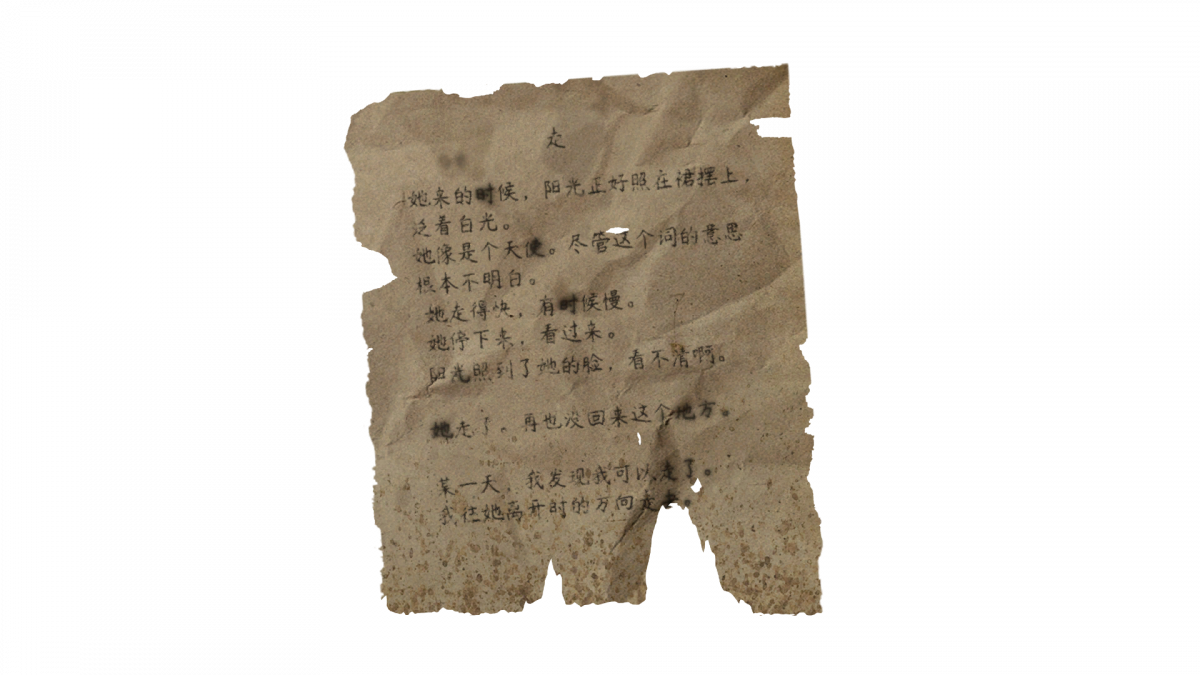 走
她来的时候，阳光正好照在裙摆上，
泛着白光。
她像是个天使。尽管这个词的意思
根本不明白。
她走得快，有时候慢。
她停下来，看过来。
阳光照到了她的脸，看不清啊。
她走了。再也没回来这个地方。
某一天，我发现我可以走了。
我往她离开时的方向走去。